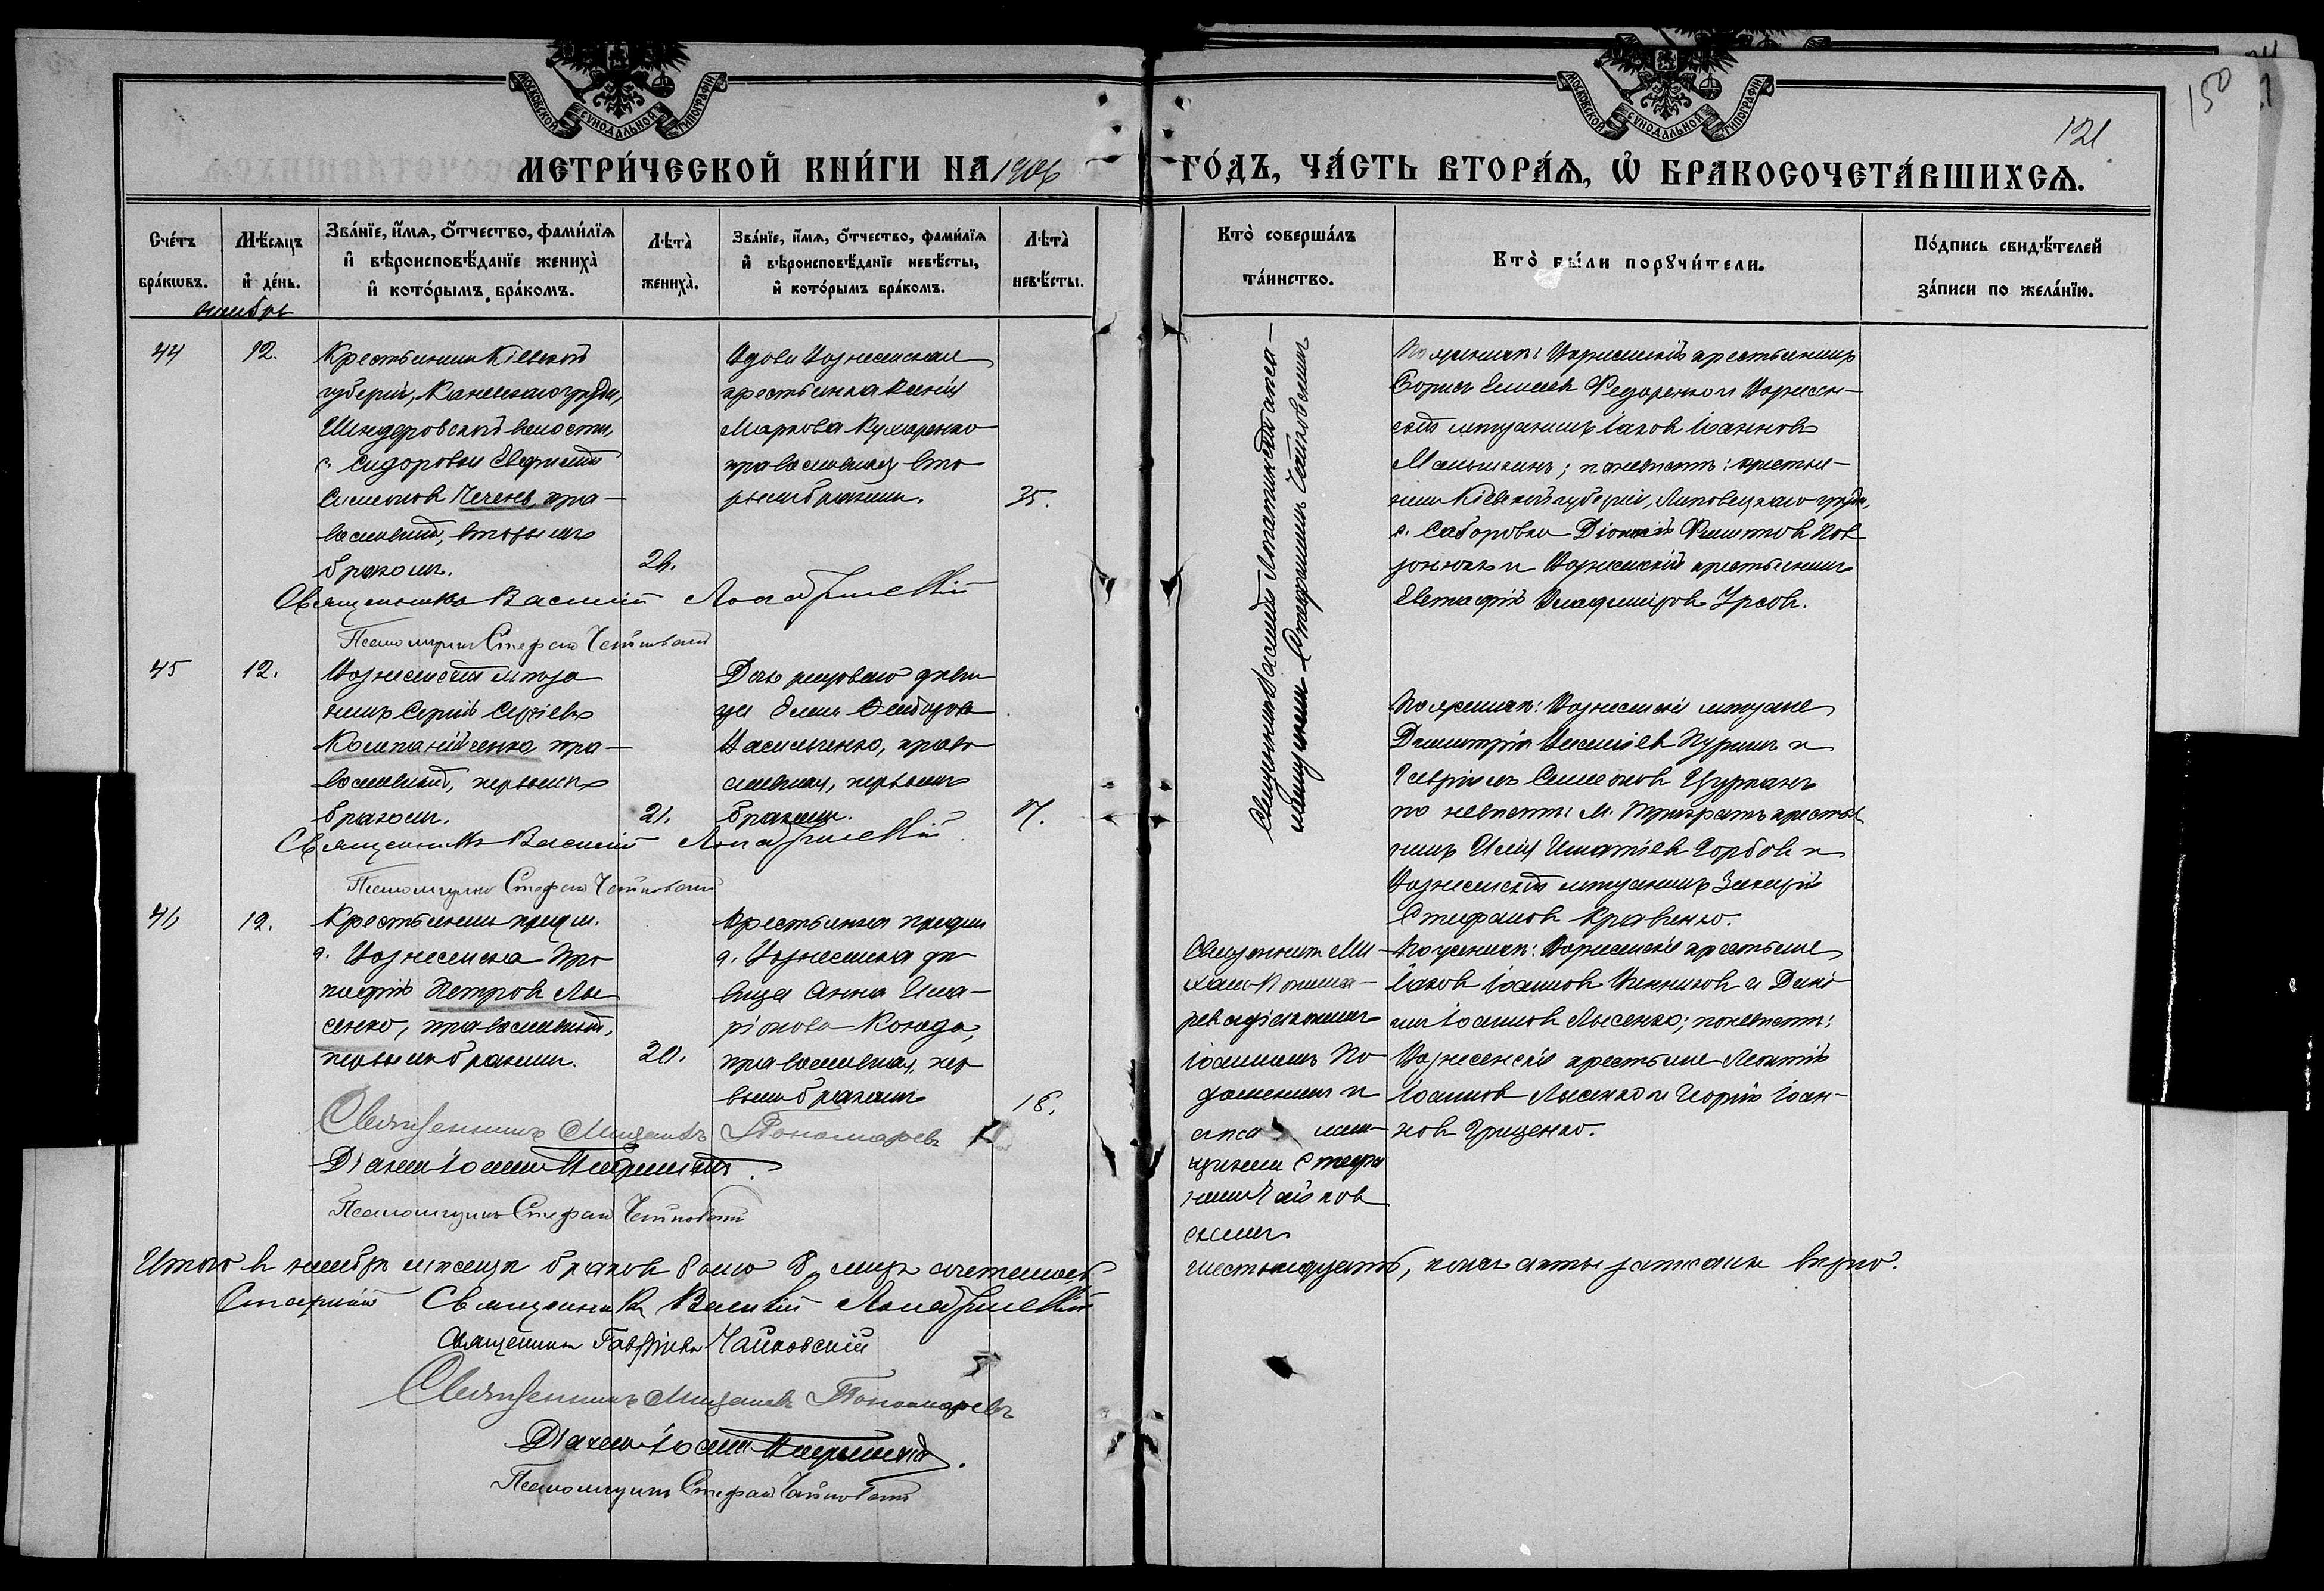 МОСКОВСКОЙ СѴНОДАЛЬНОЙ ТИПОГРАФІИ
МОСКОВСКОЙ СѴНОДАЛЬНОЙ ТИПОГРАФІИ
150
121
МЕТРИ́ЧЕСКОЙ КНИ́ГИ НА 1906 ГО́ДЪ, ЧА́СТЬ ВТОРА́Ѧ, Ѽ БРАКОСОЧЕТА́ВШИХСѦ.
Сче́тъ бра́кѡвъ.
Мѣ́сѧцъ и҆ де́нь.
Зва́нїе, и҆́мѧ, о҆́тчество, фами́лїѧ и҆ вѣроисповѣ́данїе жениха̀ и҆ кото́рымъ бра́комъ.
Лѣта̀ жениха̀.
Зва́нїе, и҆́мѧ, о҆́тчество, фами́лїѧ и҆ вѣроисповѣ́данїе невѣ́сты, и҆ кото́рымъ бра́комъ.
Лѣта̀ невѣ́сты.
Кто̀ соверша́лъ та́инство.
Кто̀ бы́ли порꙋчи́тели.
По́дпись свидѣ́телей за́писи по жела́нїю.
ноябрь
44
12.
Крестьянинъ Кіевской
губерніи, Каневскаго уѣзда,
Шендеровской волости,
с. Сидоровки Евфимій
Симеоновъ Чечень, пра-
вославный, вторымъ
бракомъ.
26.
Вдова Вознесенская
крестьянка Ксенія
Маркова Кухаренко
православная, вто-
рымъ бракомъ.
35.
Священникъ Василій
псаломщикомъ Стефаномъ Чайковскимъ
По женихѣ: Вознесенскій крестьянинъ
Борисъ Федоренко и Вознесен-
скій мѣщанинъ Іаковъ Іоанновъ
Малышкинъ; по невѣстѣ: крестья-
нинъ Кіевской губерніи, Липовецкаго уѣзда,
с. Саборовки Діонисій
и Вознесенскій крестьянинъ
Евстафій Владиміровъ Урсовъ.
Священникъ Василій
Псаломщикъ Стефанъ Чайковскій
45
12.
Вознесенскій мѣща-
нинъ Сергій Сергіевъ
Компанійченко, пра-
вославный, первымъ
бракомъ.
21.
Дочь рядового дѣви-
ца Елена
Васильченко, право-
славная, первымъ
бракомъ.
17.
По женихѣ: Вознесенскіе мѣщане
Димитрій и
Гавріилъ Симеоновъ Цурканъ
по невѣстѣ: м. Трикратъ крестья-
нинъ Илія Игнатіевъ Горбовъ и
Вознесенскій мѣщанинъ Захарій
Стефановъ Кравченко.
Священникъ Василій
Псаломщикъ Стефанъ Чайковскій
46
12.
Крестьянинъ предм.
г. Вознесенска Про-
кофій Петровъ Лы-
сенко, православный,
первымъ бракомъ.
20.
Крестьянка предм.
г. Вознесенска дѣ-
вица Анна Ила-
ріонова Когада,
православная, пер-
вымъ бракомъ
18.
Священникъ Ми-
хаилъ Понома-
ревъ съ діакономъ
Іоанномъ
и
псалом-
щикомъ Стефа-
номъ Чайков-
скимъ
По женихѣ: Вознесенскіе крестьяне
Іаковъ Іоанновъ Винниковъ и
Іоанновъ Лысенко; по невѣстѣ:
Вознесенскіе крестьяне Леонтій
Іоанновъ Лысенко и Георгій Іоан-
новъ Гриценко.
Священникъ Михаилъ Пономаревъ
Діаконъ Іоаннъ
Псаломщикъ Стефанъ Чайковскій
Итого въ ноябрѣ мѣсяцѣ браковъ было 8, лицъ сочетаніемъ шестьнадцать, коихъ акты записаны вѣрно.
Старшій Священникъ Василій
Священникъ Гавріилъ Чайковскій
Священникъ Михаилъ Пономаревъ
Діаконъ Іоаннъ
Псаломщикъ Стефанъ Чайковскій